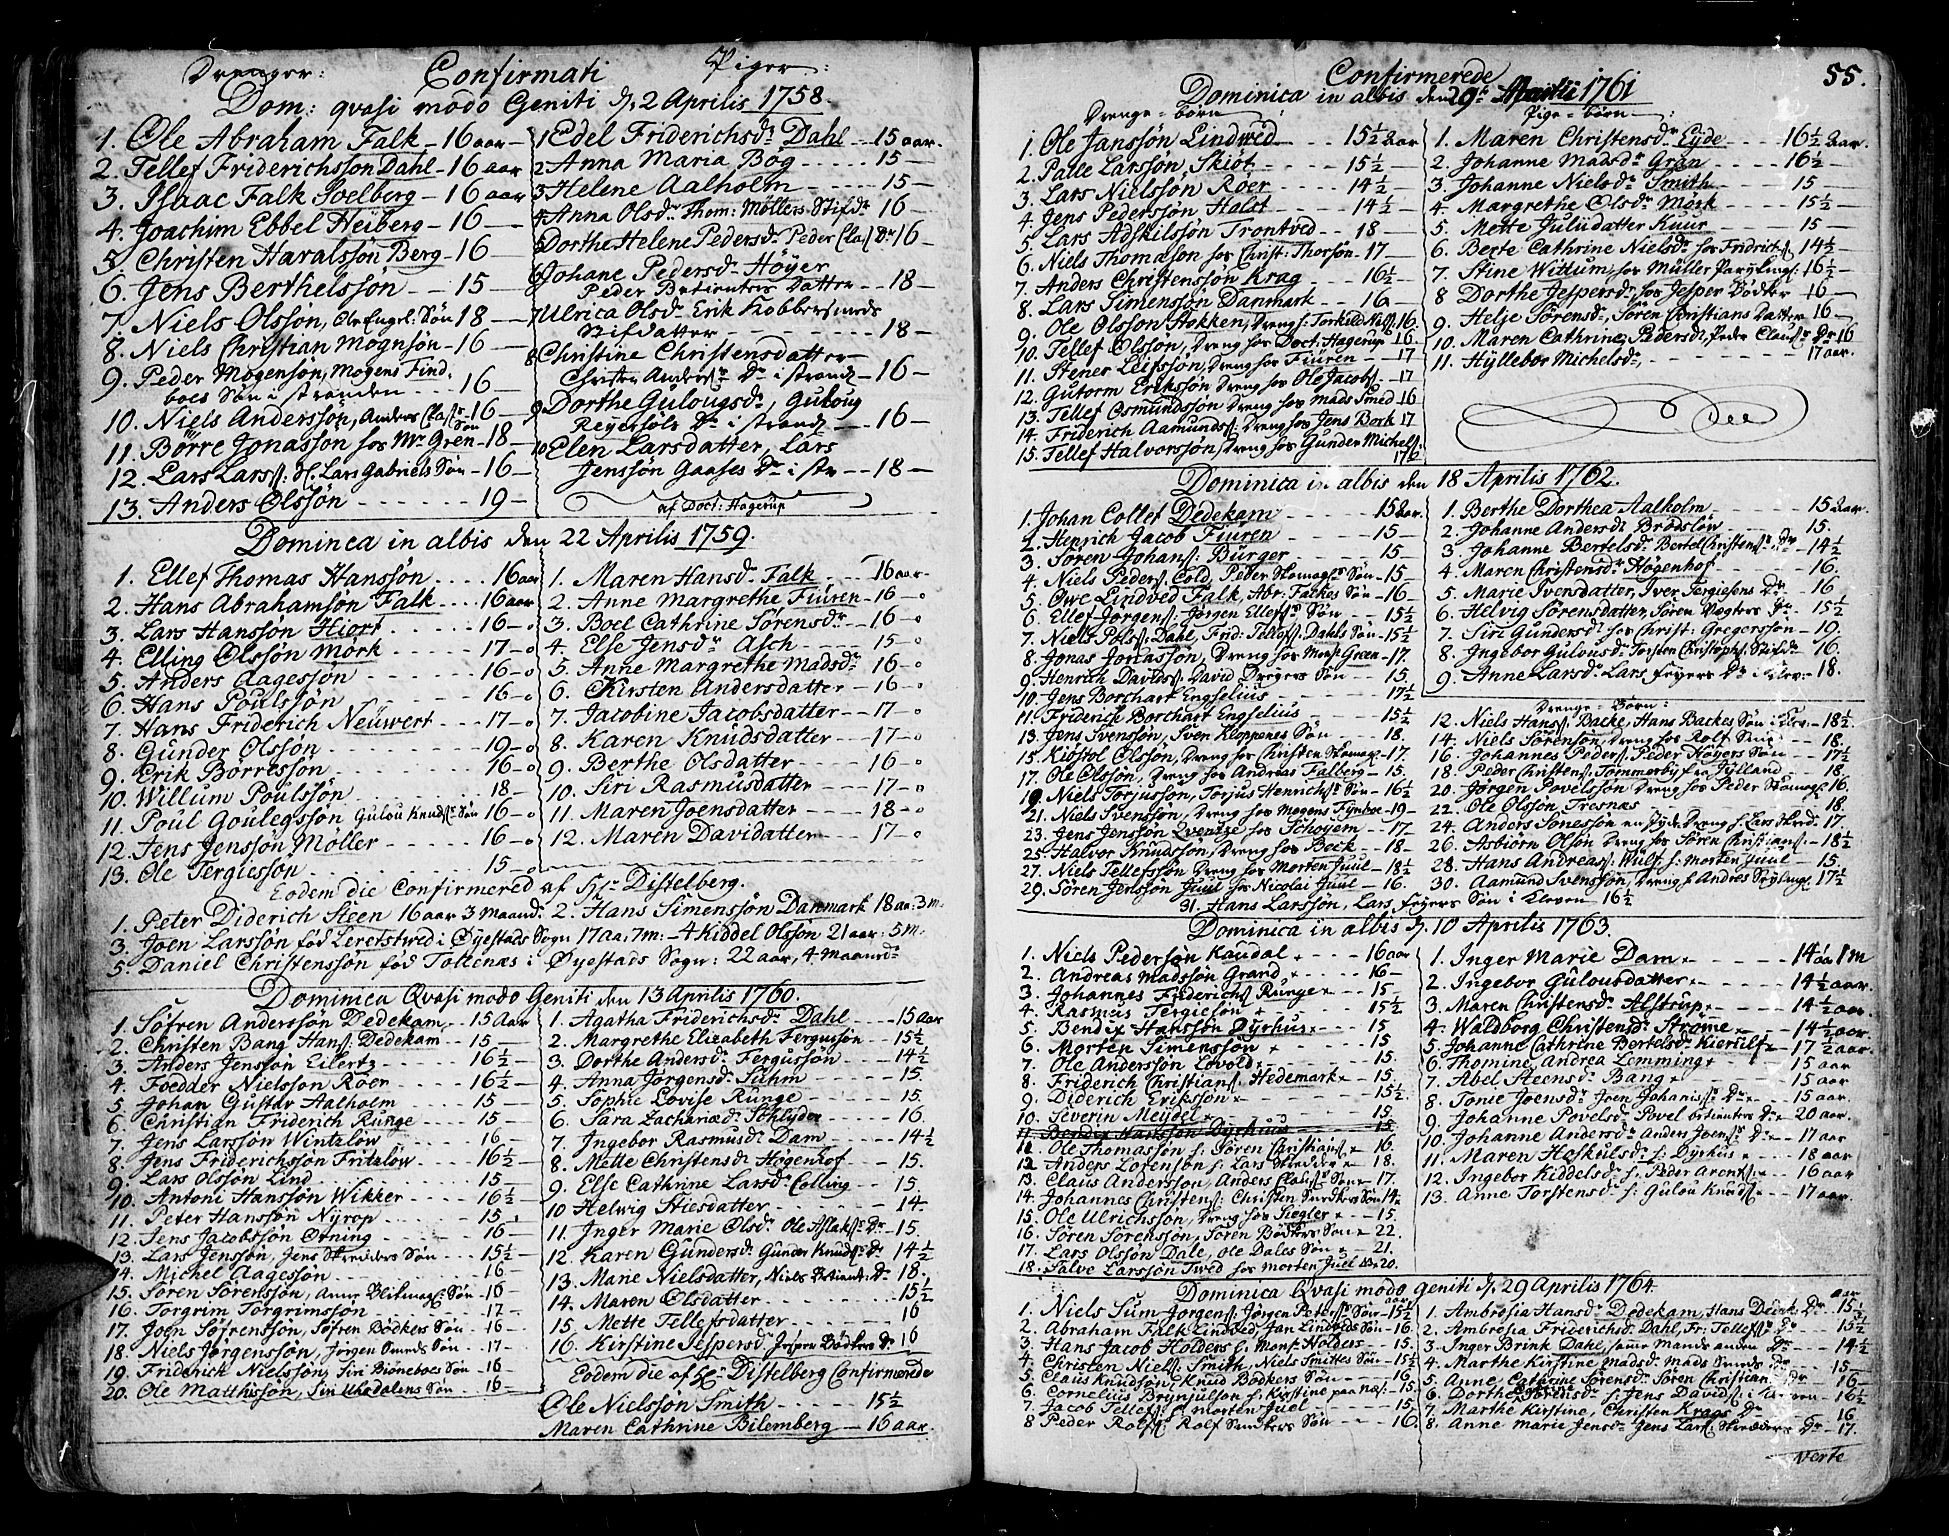 Drenger: Confirmati Piger:
Dom: qvasi modo Geniti d. 2 Aprilis 1758.
1. Ole Abraham Falk - 16 aar -
2. Tellef Friderichsson Dahl - 16 aar
3. Isaac Falk Soelberg - 16 aar
4. Joachim Ebbel Heiberg - 16 -
5. Christen Haralssön Berg - 16
6. Jens Berthelssön - - 15 -
7. Niels Olsson, Ole Engel: Sön 18 -
8. Niels Christian Mognsön - 16 -
9. Peder Mogensön, Mogens Find,
boes Sön i stranden - 16 -
10. Niels Anderssön, Anders Clas: Sön - 16 -
11. Börre Jonasson hos Mr. Gren - 18 -
12. Lars Lars: Lars Gabriels Sön - 16 -
13. Anders Olssön - - - - 19 -
1 Edel Friderichsdr Dahl - 15 aar.
2 Anna Maria Bog - - - 15 -
3 Helene Aalholm - - - - 15 -
4 Anna Olsdr Thom: Möllers Stifdr 16 -
5 Dorthe Helene Pedersdr Peder Clas Dr 16 -
6 Johane Pedersdr Höyer
Peder Betienters Datter - - 18 -
7 Ulrica Olsdr Erik Kobbersmeds
Stifdatter - - - - - - 18 -
8 Christine Christensdatter -
Christen Anders: Dr i strand - 16 -
9 Dorthe Gulougsdr, Guloug
Reyersöls Dr i strand - 16 -
10 Elen Larsdatter, Lars
Jenssön Gaases Dr i str - - 18 -
af Doct: Hagerup
Dominca in albis den 22 Aprilis 1759.
1. Ellef Thomas Hanssön - - - 16 aar
2. Hans Abrahamsön Falk - - - 16 aar
3. Lars Hanssön Hiort - - - - 16 -
4. Elling Olssön Mörk - - - - 17 -
5. Anders Aagesjön - - - - 16 -
6. Hans Poulssön - - - - 16 -
7. Hans Friderich Neuwert - - - 17 -
8. Gunder Olsson - - - - 19 -
9. Erik Börressön - - - - 16 -
10. Willum Poulssön - - - - 18 -
11. Poul Goulegssön Gulou Knuds: Sön 16 -
12. Jens Jenssön Möller - - - 16 -
13. Ole Tergiessön - - - - 15 -
1. Maren Hansdr Falk - - - 16 aar -
2. Anne Margrethe Fiuren - 16 -
3. Boel Cathrine Sörensdr - - 16 -
4. Else Jensdr Asch - - - 15 -
5. Anne Margrethe Madsdr - 16 -
6. Kirsten Andersdatter - 16 -
7. Jacobine Jacobsdatter - - 17 -
8. Karen Knudsdatter - - 17 -
9. Berthe Olsdatter - - - 16 -
10. Siri Rasmusdatter - - - 17 -
11. Maren Joensdatter - - - 18 -
12. Maren Davidatter - - - 17 -
Eodem die Confirmered af Hr Distelberg.
1. Peter Diderich Steen 16 aar 3 Maand. 2. Hans Simenssön Danmark 18 aa: 3 m.
3. Joen Larssön föd Leretstwed i Öyestads Sogn 17 aa: 7m. - 4 Kiddel Olsson 21 aar: 5 M.
5. Daniel Christenssön föd Toltenæs i Öyestads Sogn: 22 aar, 4 Maand.
Dominica Qvasi modo Geniti den 13 Aprilis 1760.
1. Söfren Anderssön Dedekam - 15 Aar
2. Christen Bang Hans: Dedekam - - 15 -
3. Anders Jenssön Eilertz - - - 16½ -
4. Foedder Nielsson Röer - - - 16½ -
5. Johan Gustav Aalholm - - - 15 -
6. Christian Friderich Runge - - 15 -
7. Jens Larssön Wintzlöw - - - 16 -
8. Jens Friderichssön Fritzlöw - - 16½ -
9. Lars Olsson Lind - - - - 15 -
10. Antoni Hanssön Wikker - - - 16½ -
11. Peter Hanssön Nyrop - - - 15.
12. Jens Jacobsson Örning - - - 16 -
13. Lars Jenssön, Jens Skreders Sön - 15½ -
14. Michel Aagessön - - - - 16 -
15. Sören Sörenssön, Anne Blikmag: Sön - 16 -
16. Torgrim Torgrimssön - - - 17 -
17. Joen Söfrenssön, Söfren Bödkers Sön - 16 -
18. Niels Jörgenssön, Jörgen Smeds Sön - 17 -
19. Friderich Nielssön, Siri Biöneboes Sön - 16
20. Ole Matthissön, Siri Uhrdalens Sön - 16 -
1. Agatha Friderichsdr Dahl - - 15 aar
2. Margrethe Elizabeth Ferguisön - 15½
3. Dorthe Andersdr Fergussön - - 14½
4. Anna Jörgensdr Suhm - - - 15.
5. Sophie Lovise Runge - - - 15.
6. Sara Zachariædr Schlyder - - 16.
7. Ingebor Rasmusdr Dam - - - 14½
8. Mette Christensdr Högenhof - - 15.
9. Else Cathrine Larsdr Colling - - 15.
10 Helwig Stiesdatter - - - - 14.
11. Inger Marie Olsdr Ole Aslaks: Dr - 15.
12. Karen Gundersdr Gunder Knuds: Dr 14½
13. Marie Nielsdatter, Niels Betient: Dr 18.
14. Maren Olsdatter - - - - 15½
15. Mette Tellefsdatter - - - 16
16. Kirstine Jespersdr Jesper Bödkers Dr 16
Eodem die af Hr Distelberg Confirmerede
Ole Nielssön Smith - - - - 15½
Maren Cathrine Bilemberg - 16 aar.
Confirmerede 55.
Dominica in albis den 29de Martii 1761
Drenge-börn - : Pige-börn - :
1. Ole Janssön Lindwed - - - 15½ aar
2. Palle Larssön Skiöt - - - 15½ -
3. Lars Nielssön Röer - - - 14½ -
4. Jens Pederssön Haldt - - - 14½ -
5. Lars Adskilssön Trontved - - 18 -
6. Niels Thomasön hos Christ: Thorsön - 17 -
7. Anders Christenssön Krag - - - 16½ -
8. Lars Simenssön Danmark - - 16 -
9. Ole Olsson Stokken, dreng f. Torkild Niels: 16.
10. Tellef Olsson, Dreng hos Doct. Hagerup 16.
11. Stener Leifssön, Dreng hos Fiüren - - 17
12. Gutorm Erikssön Dreng hos Ole Jacobs: - 17
13. Tellef Osmundssön Dreng hos Mads Smed 16
14. Friderich Aamunds: Dreng hos Jens Bork 17
15. Tellef Halvorssön, Dreng hos Gunder Michels: 17½
1. Maren Christensdr Eyde - - - 16½ aar.
2. Johanne Madsdr Gran - - - 16½
3. Johanne Nielsdr Smith - - - 15 -
4. Margrethe Olsdr Mörk - - - 15½ -
5. Mette Juliidatter Kuur - - - 15 -
6. Berte Cathrine Nielsdr hos Fridrich: 14½ -
7. Stine Wittum, hos Müller - 16½ -
8 Dorthe Jespersdr hos Jesper Bödker - 16 -
9. Helje Sörensdr, Sören Christians Datter - 16 -
10. Maren Cathrine Pedersdr Peder Claus: Dr 16
11. Hyllebor Michelsdr, - - - - - 17 aar.
Dominica in albis den 18 Aprilis 1762.
1. Johan Collet Dedekam - - - 15 aar.
2. Henrich Jacob Fiuren - - - 15 -
3. Sören Johans: Bürger - - - 15 -
4. Niels Peders: Cold, Peder Skomag: Sön - 15 -
5. Owe Lindved Falk Abr: Falkes Sön - 16 -
6. Ellef Jörgens: Jörgen Ellefs: Sön - - 15½
7. Niels Phls: Dahl, Frid: Tellefs: Dahls Sön - 15½
8. Jonas Jonassön, Dreng hos Mons: Græn - 17
9. Henrich Davids: David Dreyers Sön - - 15.
10. Jens Borchart Engselius - - - 17½
11. Friderich Borchart Engselius - - - 15½
13. Jens Svenssön, Sven Kloppenes Sön - 18.
15. Kiöstol Olssön, Dreng hos Christen Skomag: - 17.
17. Ole Olssön, Dreng hos Andreas Falberg - 15.
19. Niels Torjussön, Torjus Henrichs: Sön - 16½
21. Niels Svenssön, Dreng hos Mogens Fynboe - 19 -
23. Jens Jenssön Qventze hos Schoyem - - 17 -
25. Halvor Knudssön, Dreng hos Beck - - 18 -
27. Niels Tellefssön Dreng hos Morten Juul - 18½
29. Sören Jensson Juul hos Nicolai Juul - 16.
31. Hans Larssön, Lars Feyers Sön i Kleven - 16½
1. Berthe Dorthea Aalholm - - - 15 aar.
2. Johanne Andersdr Brodslow - - - 15.
3. Johanne Bertelsdr Bertel Christens: Dr 14½
4. Maren Christensdr Högenhof - - - 16.
5. Marie Ivensdatter, Iver Tergiesens Dr - 16
6. Helvig Sörensdatter, Sören Vægters Dr - 15½
7. Siri Gundersdr hos Christ: Gregerssön - 19.
8. Ingebor Gulousdr Torsten Christophs: Stifdr 16.
9. Anne Larsdr Lars Feyers Dr i Kleven - 18.
Drenge-Börn:
12. Niels Hans: Backe, Hans Backes Sön i Klev: - 18½
14. Niels Sörensön, Dreng hos Rolf Smed - - 18.
16. Johannes Peders: Peder Höyers Sön - - 17½
18. Peder Christens: Tommerby fra Jylland - 18.
20. Jörgen Povelssön Dreng hos Peder Skomag: 16.
22. Ole Olssön Tresnæs - - - - 18.
24. Anders Sonessön en Jyde Dreng f. Lars Skred: 17.
26. Asbiörn Olsön Dreng hos Sören Christians: - 18½
28. Hans Andreas: Wülf f. Morten Juul - 15.
30. Aamund Svenssön, Dreng f. Andres 17½
Dominica in albis d. 10 Aprilis 1763.
1. Niels Pederssön Kaudal - - - 16 aar
2. Andreas Madssön Grand - - - 16 -
3. Johannes Friderichs: Runge - - 15 -
4. Rasmus Tergiesön - - - 15½
5. Bendix Hanssön Dyrhus - - - 15
6. Morten Simenssön - - - - 15.
7. Ole Anderssön Lovold - - - 15.
8. Friderich Christians: Hedemark - 15.
9. Diderich Erikssön - - - - 15½
10. Severin Meydel - - - - 15.
11. Bendix Hanssön Dyrhuus - - - 15
11. Ole Thomassön f: Sören Christians: - 16
12 Anders Lorenson f. Lars Skredder - 18.
13. Claus Anderssön, Anders Claus: Sön - 17.
14. Johannes Christens: Christen Sun Sön 14.
15. Ole Ulrichssön, Dreng hos Siegler - - 15.
16. Sören Sörenssön, Sören Bödkers Sön - 22.
17. Lars Olssön Dale, Ole Dales Sön - 21.
18. Salve Larssön Twed hos Morten Juel - 20.
1. Inger Marie Dam - - - 14 aar 1 m
2. Ingebor Gulousdatter - - - 14½ aar.
3. Maren Christensdr Alstrup - - 14½ aar.
4. Waldborg Christensdr Strome - - 14½ aar.
5. Johanne Cathrine Bertelsdr Kierulf - 17½ aar.
6. Thomine Andrea Lemming - - 15 aar
7. Abel Steensdr Bang - - - 15 aar
8. Tonie Joensdr Joen Johanis: Dr - 15 aar.
9. Johanne Povelsdr Povel betienters Dr - 20 aar.
10. Johanne Andersdr Anders Joens: Dr - 17 aar
11. Maren Hofkulsdr f: Dyrhus - - 18 aar
12. Ingebor Kiddelsdr f: Peder Arents: - 16 aar
13. Anne Torstensdr f: Gulou Knuds: - - 17 aar
Dominica Qvasi modo Geniti d. 29 Aprilis 1764.
1. Niels Sum Jörgens: Jörgen Peters: Sön - 15½
2. Abraham Falk Lindved, Jan Lindveds Sön - 16.
3. Hans Jacob Holders f: Mons: Holders - 15.
4. Christen Niels: Smith, Niels Smittes Sön - 15½
5. Claus Knudsön, Knud Bödkers Sön - - 16
6. Cornelius Brynjulson f: Kirstine paa Næs: - 15
7. Jacob Tellefs: f. Morten Juel - - 15.
8 Peder Rolfs: Rolf Smedkers Sön - - 16
1. Ambrosia Hansdr Dedekam, Hans Dedek: Dr 15½
2. Ambrosia Friderichsdr Dahl, Fr: Tellefs: Dr 15½
3. Inger Brink Dahl, samme Mands anden Dr - 14½
4. Marthe Kirstine Madsdr Mads Smeds Dr 15 -
5. Anne Cathrine Sörensdr Sören Christian: Dr - 16 -
6. Dorthe Cathrine Sörensdr f: Jens Davids: i Kleven - 16½
7. Marthe Kirstine, Christen Krags Dr - 16
8. Anne Marie Jensdr Jens Lars: Skræders Dr - 17.
Verte